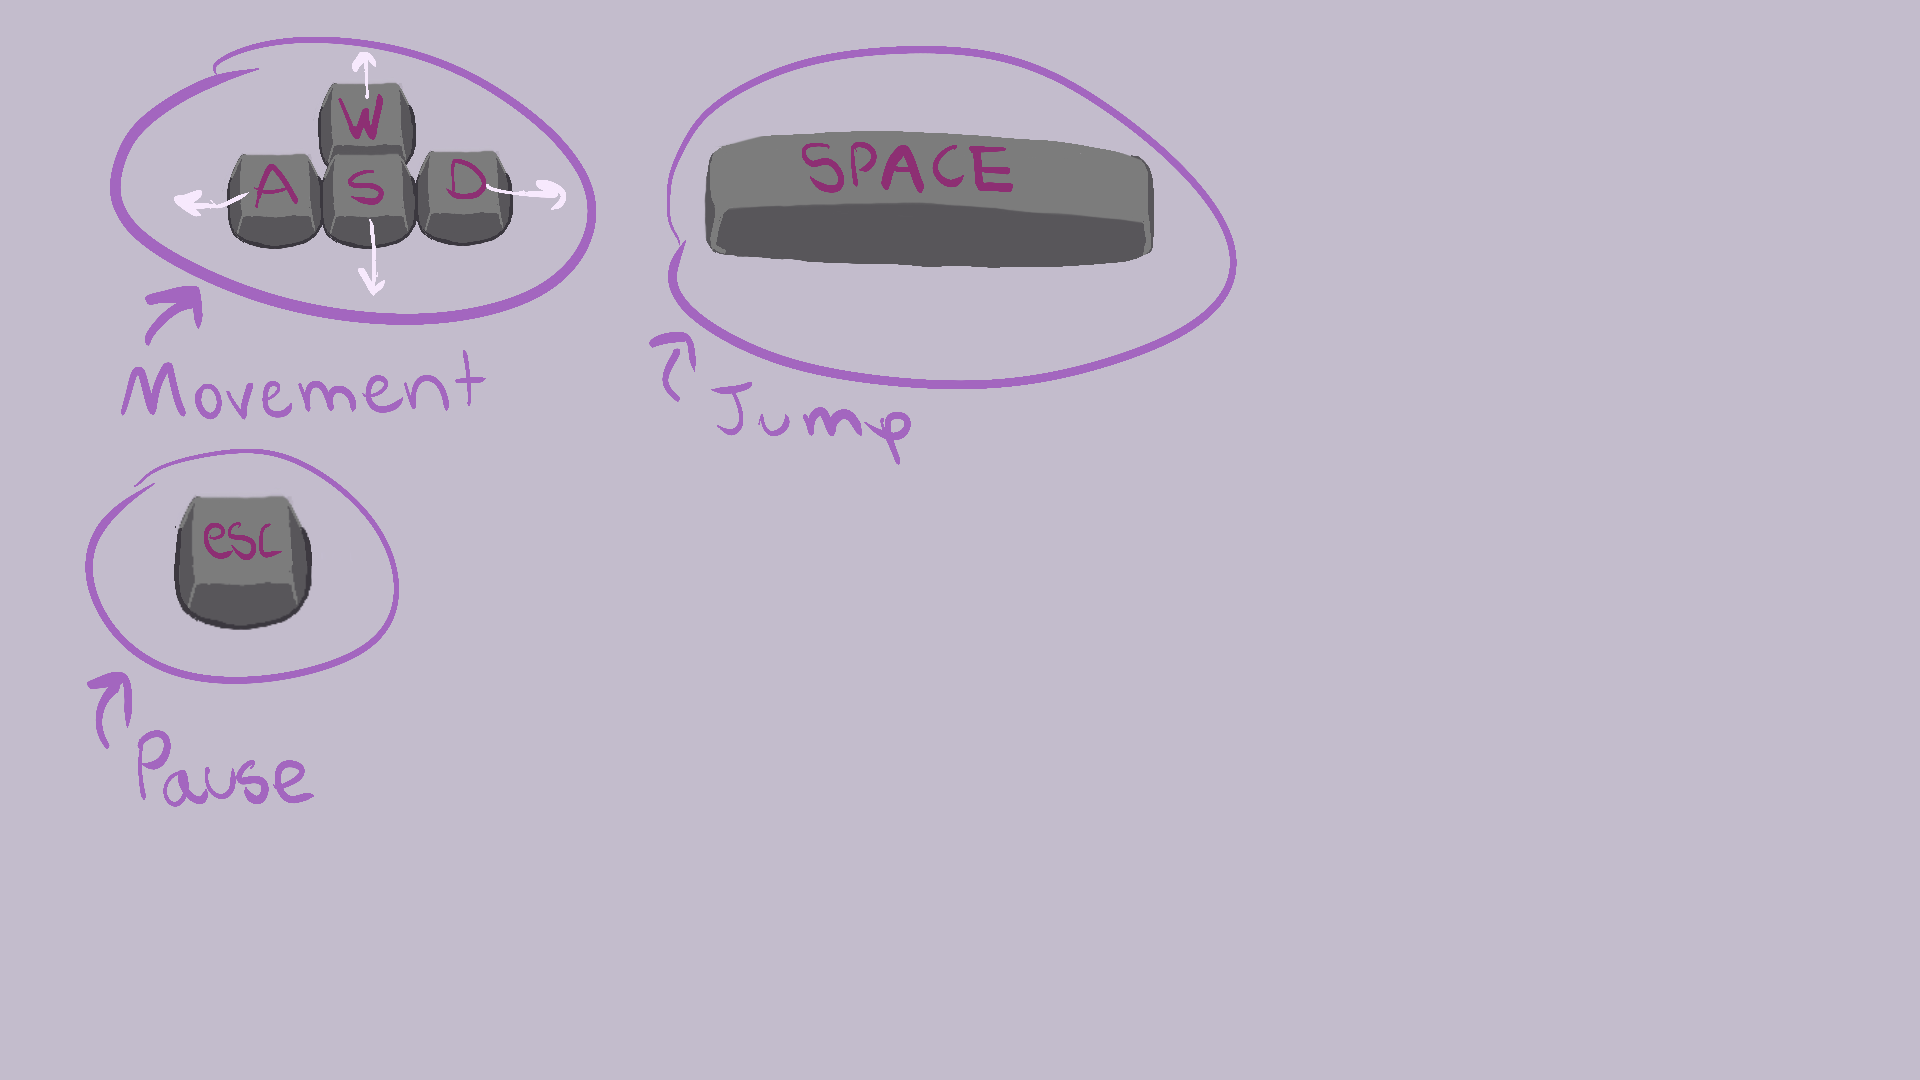 W
A S D
Movement
SPACE
Jump
esc
Pause